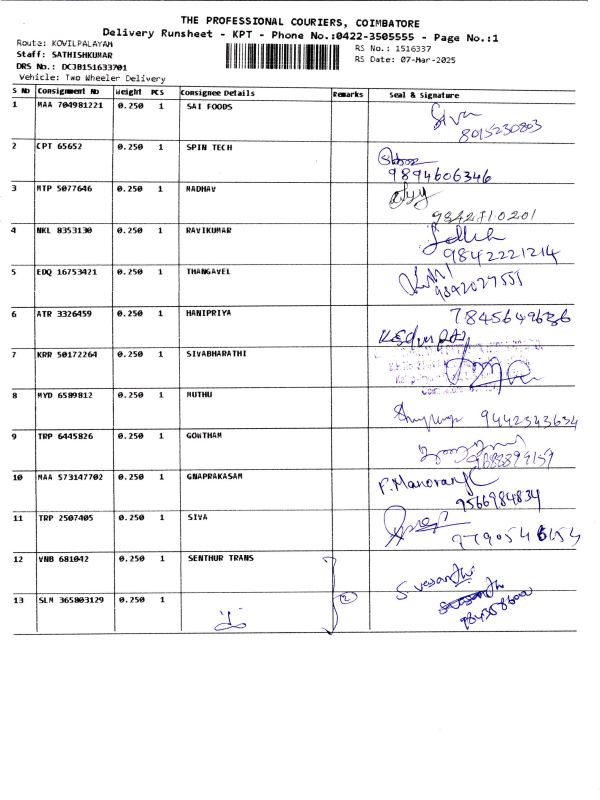 THE PROFESSIONAL COURIERS, COIMBATORE
Delivery Runsheet - KPT - Phone No.:0422-3505555 - Page No.:1
Route: KOVILPALAYAM
Staff: SATHISHKUMAR
DRS No.: DCJB151633701
Vehicle: Two Wheeler Delivery
RS No.: 1516337
RS Date: 07-Mar-2025
S No Consignment No Weight PCS Consignee Details Remarks Seal & Signature
1 MAA 704981221 0.250 1 SAI FOODS
Siva
8015230803
2 CPT 65652 0.250 1 SPIN TECH
9894606346
3 MTP 5077646 0.250 1 MADHAV
9842710201
4 NKL 8353130 0.250 1 RAVIKUMAR
9842221214
5 EDQ 16753421 0.250 1 THANGAVEL
9842027555
6 ATR 3326459 0.250 1 HANIPRIYA
7845649636
7 KRR 50172264 0.250 1 SIVABHARATHI
8 MYD 6589812 0.250 1 MUTHU
9442343634
9 TRP 6445826 0.250 1 GOWTHAM
10 MAA 573147702 0.250 1 GNAPRAKASAM
9566984834
11 TRP 2507405 0.250 1 SIVA
9790546154
12 VNB 681042 0.250 1 SENTHUR TRANS
S vasanthi
13 SLM 365803129 0.250 1
2